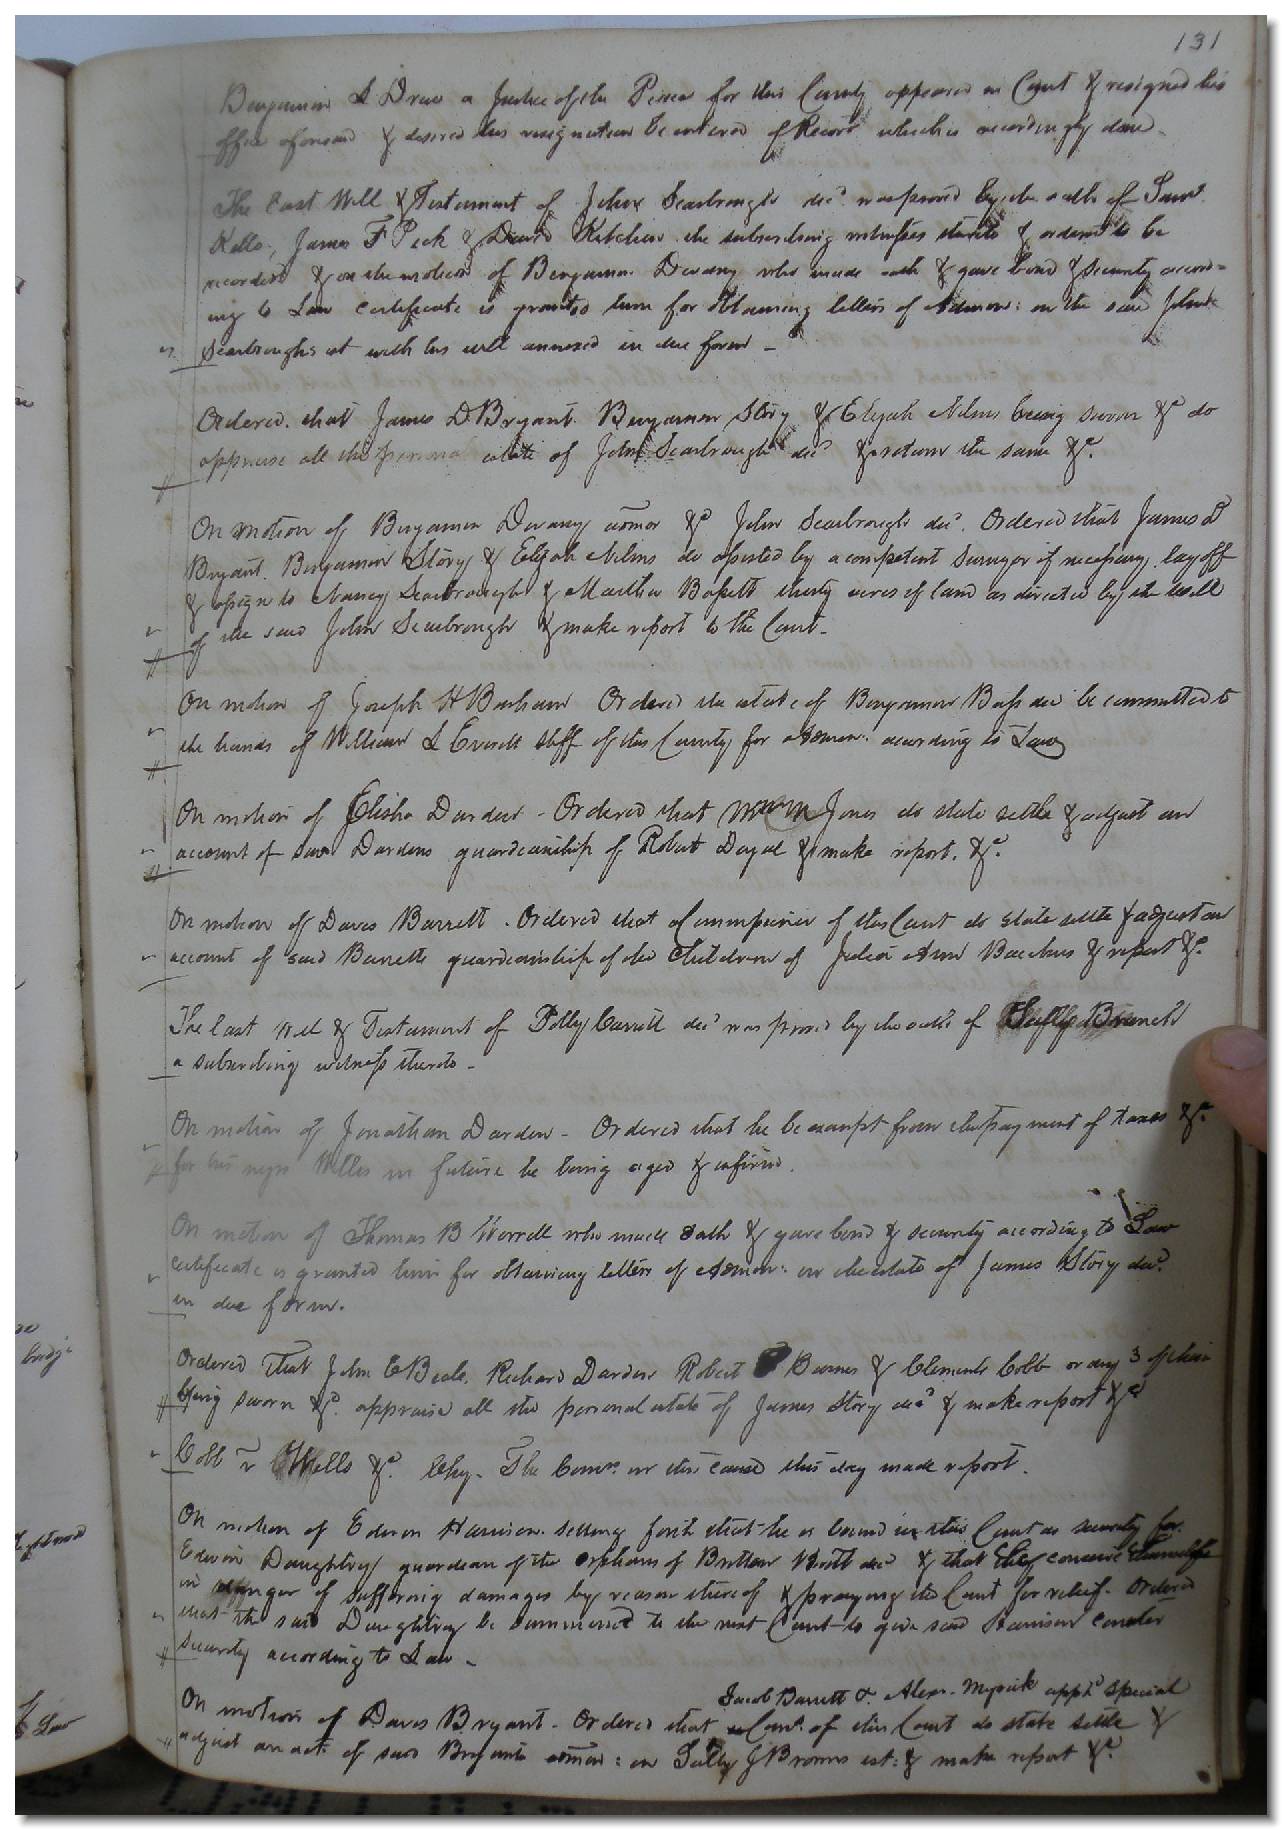 131
Benjamin S Drew a Justice of the Peace for this County appeared in Court & resigned his
office aforesaid & desired his resignation be entered of Record which is accordingly done.
The last Will & Testament of John Scarbrough decd was proved by the oath of Saml
Kello, James F Peck & David Kitchen the subscribing witnesses thereto & ordered to be
recorded & on the motion of Benjamin Devany who made oath & gave bond & security accord-
ing to Law certificate is granted him for obtaining letters of Admon: on the said John
Scarbroughs est with his will annexed in due form -
Ordered. that James D. Bryant. Benjamin Story & Elijah Nelms being sworn &c do
appraise all the personal estate of John Scarbrough decd & return the same &c.
On motion of Benjamin Devany admor &c John Scarbrough decd. Ordered that James D
Bryant. Benjamin Story & Elijah Nelms do assisted by a competent Surveyor if necessary lay off
& assign to Nancy Scarbrough & Martha Bassett thirty acres of land as directed by the will
of the said John Scarbrough & make report to the Court.
On motion of Joseph H Barham Ordered the estate of Benjamin Bass decd be committed to
the hands of William S Everett Shff of this County for Admon: according to Law
On motion of Elisha Darden - Ordered that Jones do state settle & adjust an
account of said Dardens guardianship of Robert & make report. &c.
On motion of Davis Barrett. Ordered that a Commissioner of this Court do state settle & adjust an
account of said Barretts guardianship of the Children of Julia Ann Bacchus & report &c.
The last will & Testament of Polly decd was proved by the oath of Branch
a subscribing witness thereto -
On motion of Jonathan Darden - Ordered that he be exempt from the payment of taxes &c.
for his negro Willis in future he being aged & infirm.
On motion of Thomas B Worrell who made oath & gave bond & security according to Law
certificate is granted him for obtaining letters of Admon: on the estate of James Story decd.
in due form.
Ordered That John E Beale, Richard Darden Robert Barnes & Clements Cobb or any 3 of them
being sworn &c. appraise all the personal estate of James Story decd & make report &c
Cobb v Wells &c. Chy. The Comrs. in this cause this day made report.
On motion of Edwin Harrison. setting forth that he is bound in this Court as security for
Edwin Daughtrey guardian of the orphans of Britton Britt decd & that they conceive themselves
in danger of suffering damages by reason thereof & praying the Court for relief. Ordered
that the said Daughtrey be summoned to the next Court to give said Harrison counter
security according to Law -
Jacob Barrett & Alexr. Myrick apptd special
On motion of Davis Bryant - Ordered that Comrs. of this Court do state settle &
adjust an act. of said Bryants admon: on Sally J Browns est: & make report &c.